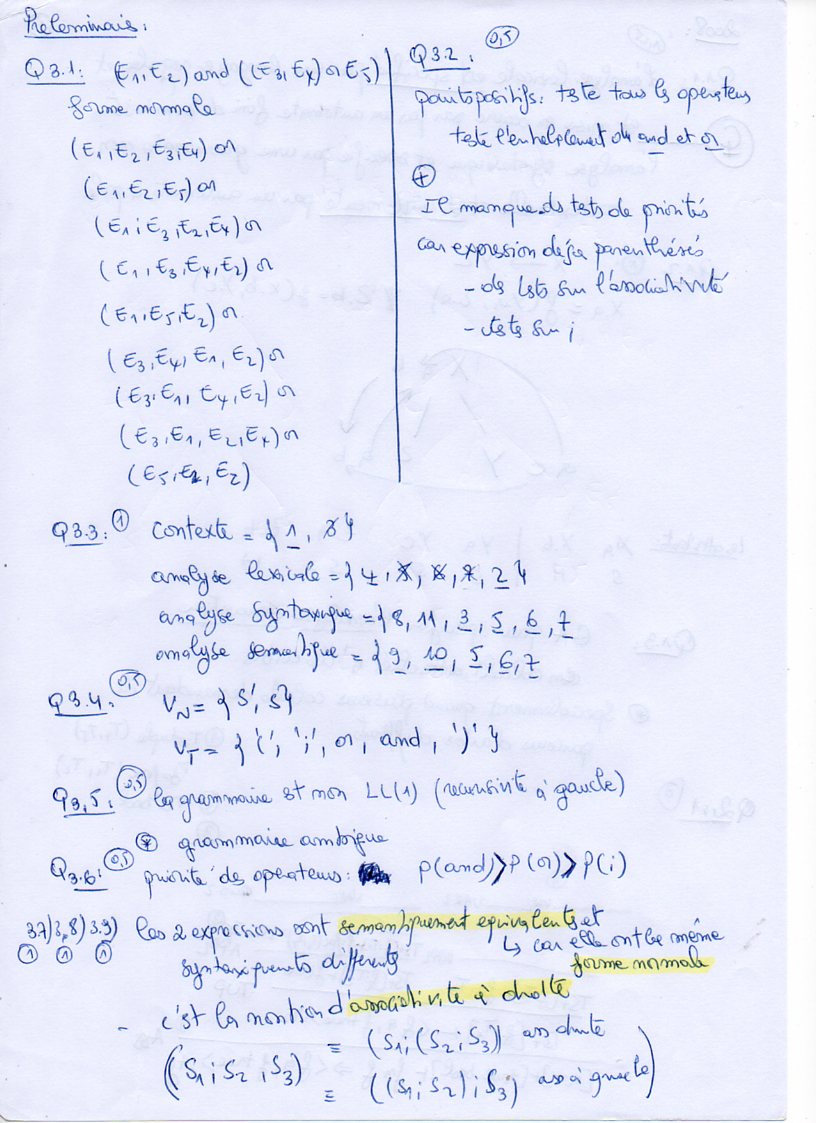 Preleminais :
Q3.1: (E1, E2) and ((E3, E4) or E5)
forme normale
(E1, E2, E3, E4) or
(E1, E2, E5) or
(E1 ; E3, E2, E4) or
(E1, E3, E4, E2) or
(E1, E5, E2) or
(E3, E4, E1, E2) or
(E3, E1, E4, E2) or
(E3, E1, E2, E4) or
(E5, E1, E2)
Q3.2 : 0,5
points positifs : teste tous les operateurs
teste l'enhelplement du and et or
+
Il manque ds tests de priorités
car expression deja parenthésés
- des tests sur l'associativité
- tests sur ;
Q3.3 : 1 contexte = { 1, 8 }
analyse lexicale = { 4, 2 }
analyse syntaxique = { 8, 11, 3, 5, 6, 7
analyse semantique = { 9, 10, 5, 6, 7
Q3.4 : 0,5 VN = { S', S }
VT = { '(', ';', or, and, ')' }
Q3,5 : 0,5 la grammaire est non LL(1) (recursivite à gauche)
* grammaire ambigue
Q3.6 : 0,5 priorite des operateurs : p(and) > p(or) > p(;)
3.7) 3,8) 3.9) les 2 expressions sont semantiquement equivalents et
1 1 1 ↳ car elle ont le même
syntaxiquents differents forme normale
- c'est la nontion d'associativite à droite
(S1 ; S2 ; S3) ≡ (S1 ; (S2 ; S3)) ass droite
≡ ((S1 ; S2) ; S3) ass à gauche)